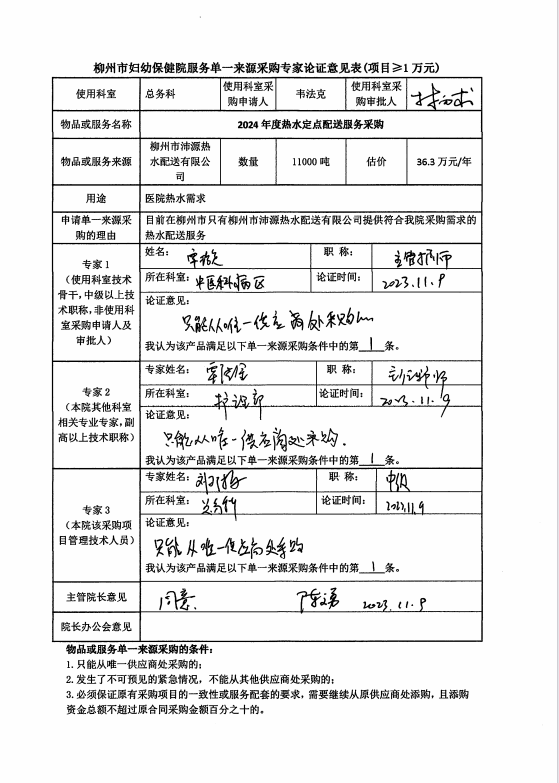 柳州市妇幼保健院服务单一来源采购专家论证意见表(项目≥1 万元)
使用科室 总务科 使用科室采购申请人 韦法克 使用科室采购审批人
物品或服务名称 2024 年度热水定点配送服务采购
物品或服务来源 柳州市沛源热水配送有限公司 数量 11000 吨 估价 36.3 万元/年
用途 医院热水需求
申请单一来源采购的理由 目前在柳州市只有柳州市沛源热水配送有限公司提供符合我院采购需求的热水配送服务
专家 1
(使用科室技术骨干,中级以上技术职称,非使用科室采购申请人及审批人)
姓名: 职 称: 主管护师
所在科室: 中医科病区 论证时间: 2023.11.9
论证意见:
只能从唯一供应商处采购
我认为该产品满足以下单一来源采购条件中的第 1 条。
专家 2
(本院其他科室相关专业专家,副高以上技术职称)
专家姓名: 职 称:
所在科室: 护理部 论证时间: 2023.11.9
论证意见:
只能从唯一供应商处采购.
我认为该产品满足以下单一来源采购条件中的第 1 条。
专家 3
(本院该采购项目管理技术人员)
专家姓名: 职 称: 中级
所在科室: 总务科 论证时间: 2023.11.9
论证意见:
只能从唯一供应商处采购
我认为该产品满足以下单一来源采购条件中的第 1 条。
主管院长意见 同意. 2023.11.9
院长办公会意见
物品或服务单一来源采购的条件:
1.只能从唯一供应商处采购的;
2.发生了不可预见的紧急情况,不能从其他供应商处采购的;
3.必须保证原有采购项目的一致性或服务配套的要求,需要继续从原供应商处添购,且添购
资金总额不超过原合同采购金额百分之十的。